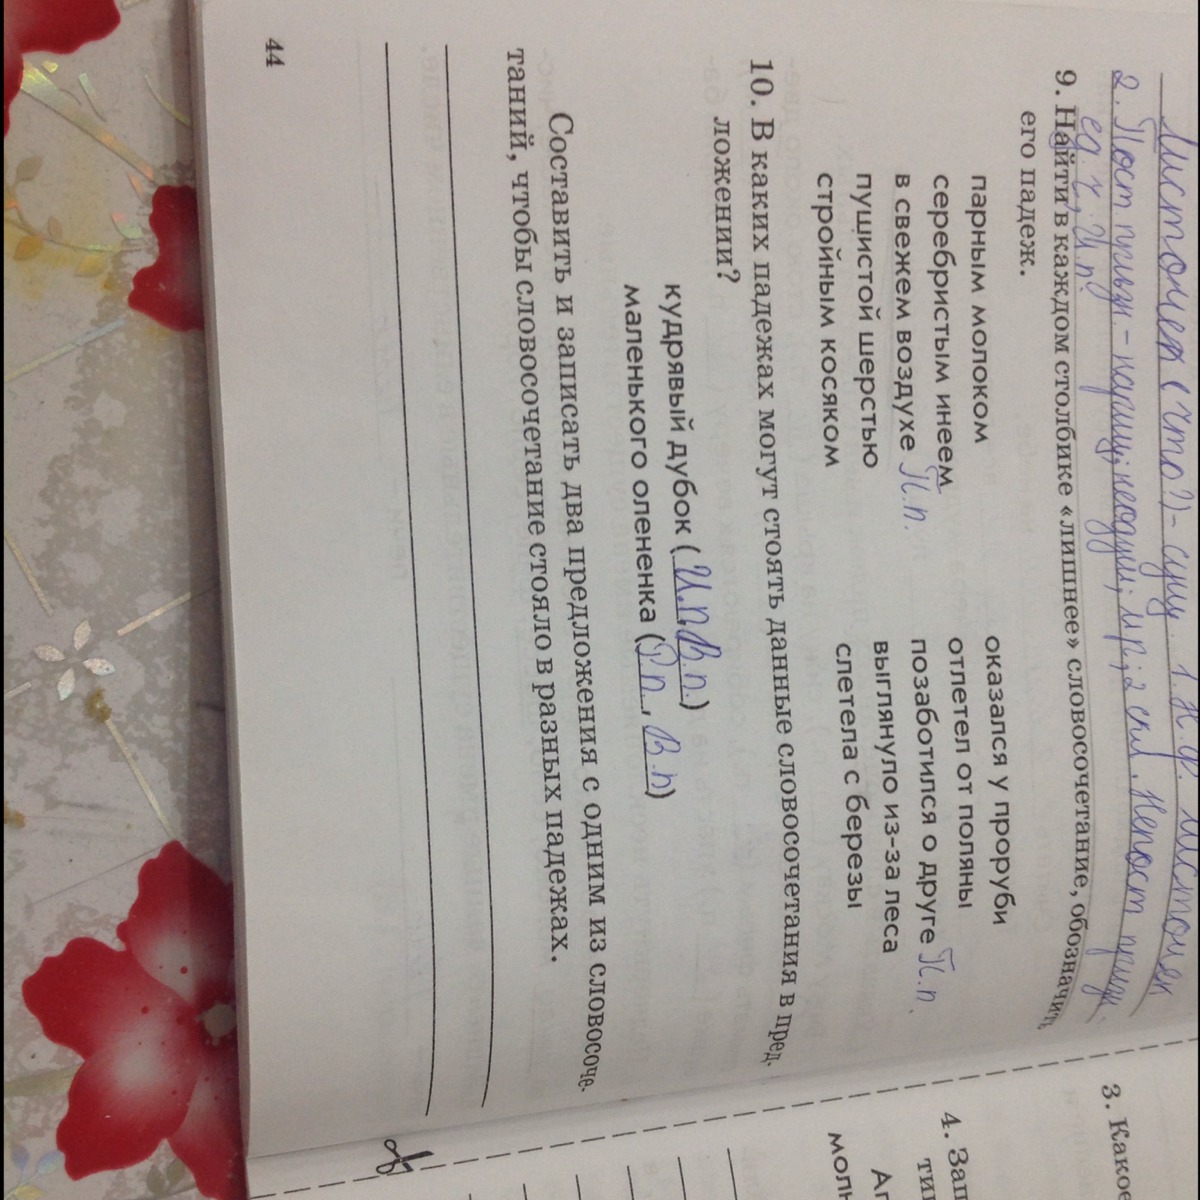 Листочек (что?) - сущ. 1. Н.ф. листочек
2. Пост призн. - нариц., неодуш., м.р., 2 скл. Непост призн.
ед.ч., И.п.
9. Найти в каждом столбике «лишнее» словосочетание, обозначить
его падеж.
парным молоком
серебристым инеем
в свежем воздухе П.п.
пушистой шерстью
стройным косяком
оказался у проруби
отлетел от поляны
позаботился о друге П.п.
выглянуло из-за леса
слетела с березы
10. В каких падежах могут стоять данные словосочетания в пред-
ложении?
кудрявый дубок (И.п, В.п.)
маленького олененка (Р.п., В.п)
Составить и записать два предложения с одним из словосоче-
таний, чтобы словосочетание стояло в разных падежах.
44
3. Какое
4. Зап
ти
Ап
молн